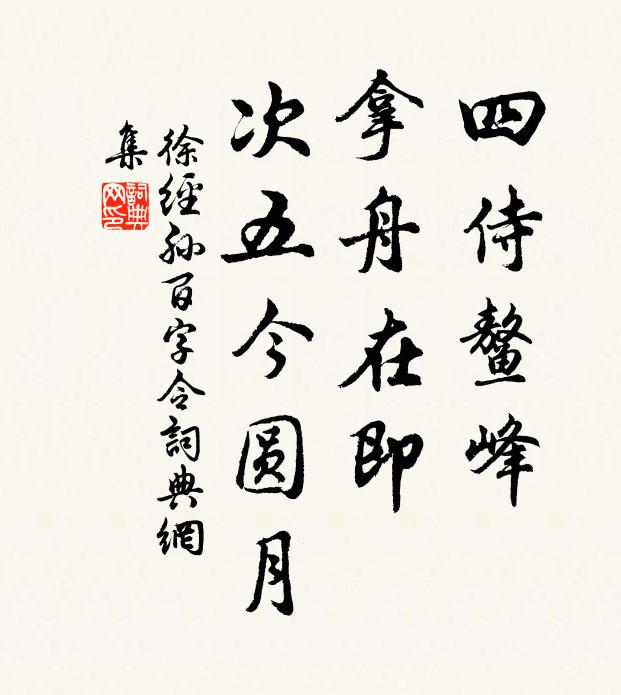 四侍鳌峰
拿舟在即
次五今圆月
徐經孙百字令詞典網
集
詞典
网印